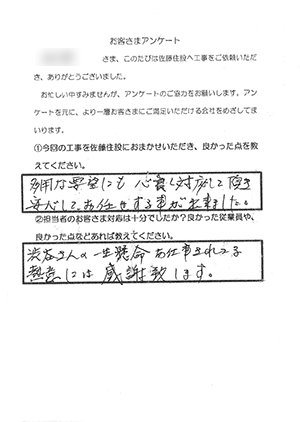 お客さまアンケート
さま、このたびは佐藤住設へ工事をご依頼いただ
き、ありがとうございました。
お忙しい中すみませんが、アンケートのご協力をお願いします。アン
ケートを元に、より一層お客さまにご満足いただける会社をめざしてま
いります。
①今回の工事を佐藤住設におまかせいただき、良かった点を教
えてください。
な要望にも 心良く対応して頂き
安心してお任せする事が出来ました。
②担当者のお客さま対応は十分でしたか?良かった従業員や、
良かった点などあれば教えてください。
渋谷さんの一生懸命お仕事されてる
熱意には 感謝致します。